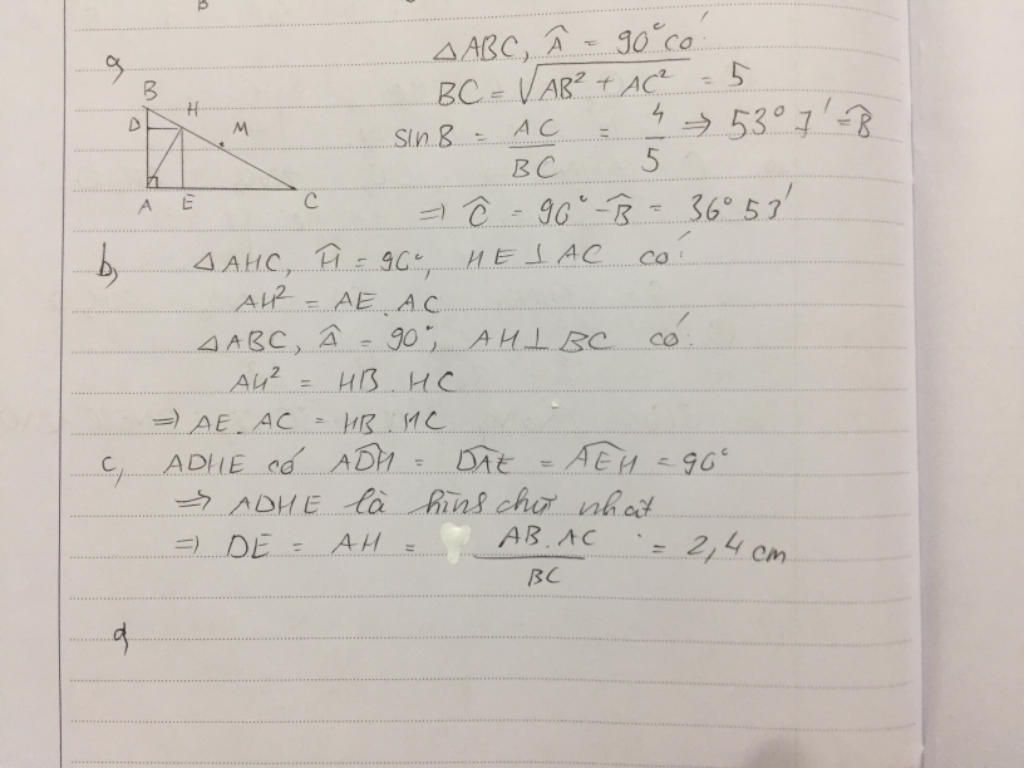 B
a,
△ABC, Â = 90° có
BC = √(AB² + AC²) = 5
sinB = AC/BC = 4/5 ⇒ 53° 7' = B̂
⇒ Ĉ = 90° - B̂ = 36° 53'
B
D
H
M
A
E
C
b, △AHC, Ĥ = 90°, HE ⊥ AC có
AH² = AE.AC
△ABC, Â = 90°, AH ⊥ BC có:
AH² = HB.HC
⇒ AE.AC = HB.HC
c, ADHE có ADH = DAE = AEH = 90°
⇒ ADHE là hình chữ nhật
⇒ DE = AH = AB.AC/BC = 2,4 cm
d